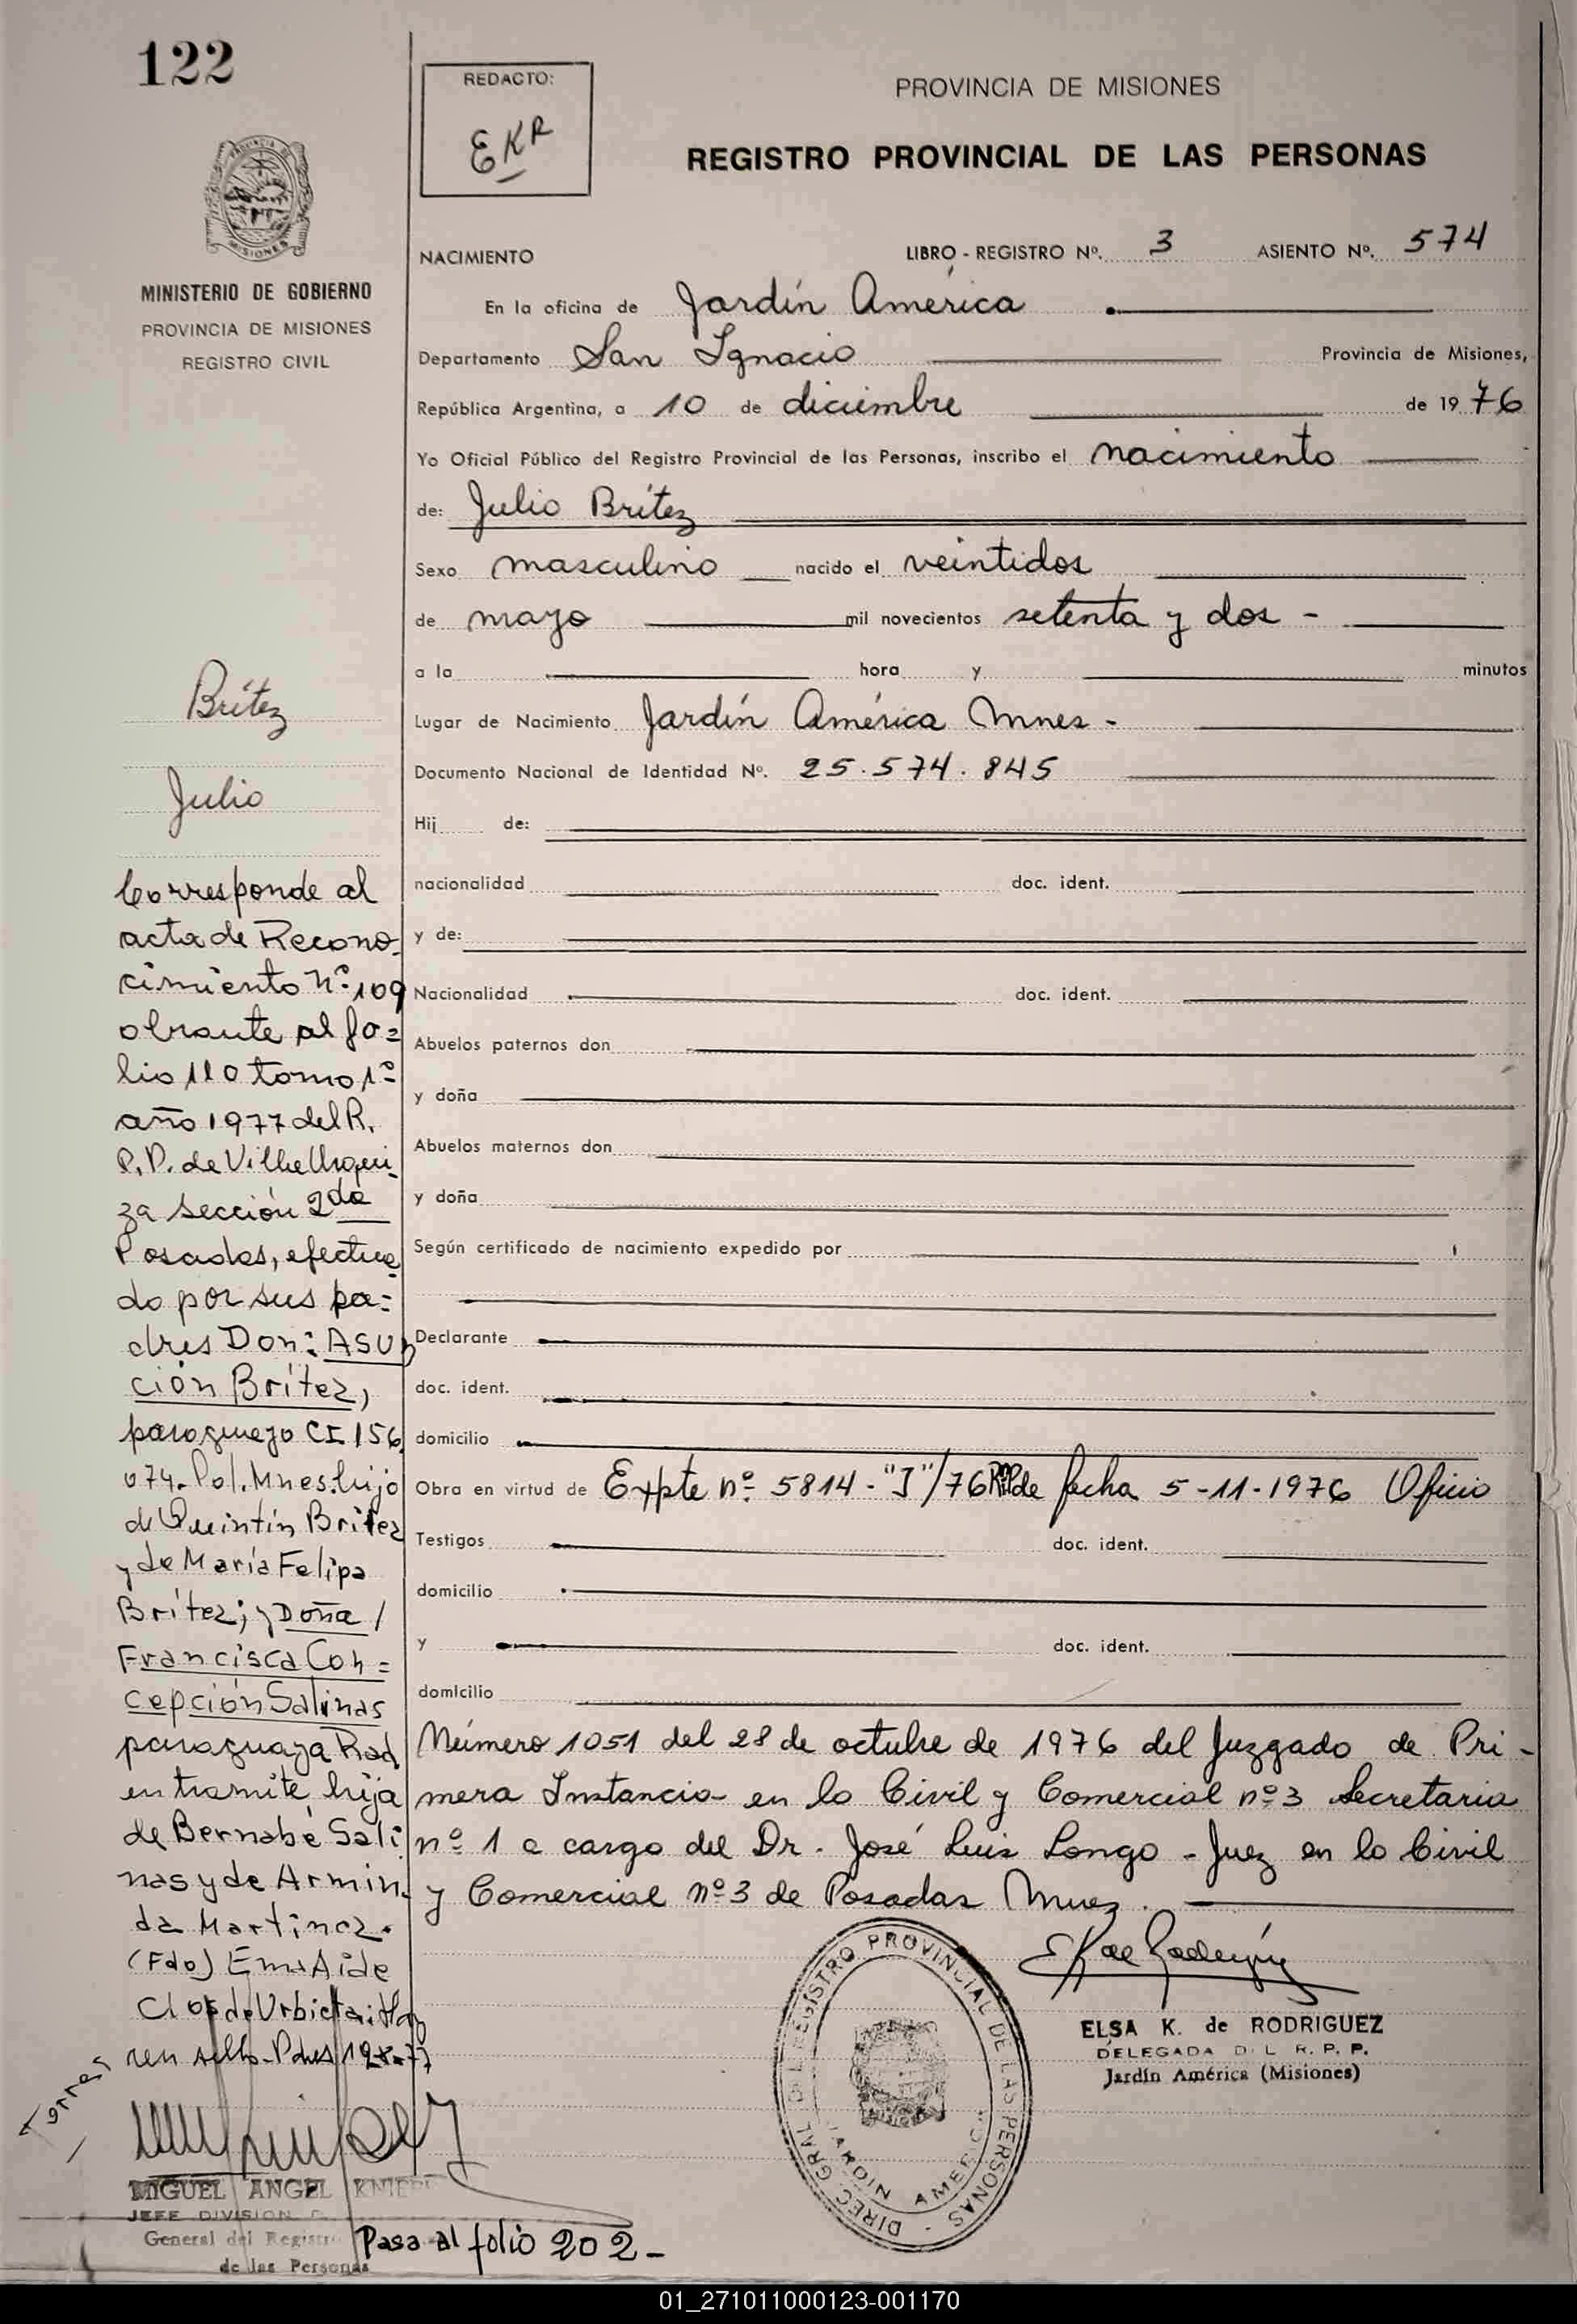 122
REDACTO:
EKR
PROVINCIA DE MISIONES
REGISTRO PROVINCIAL DE LAS PERSONAS
PROVINCIA DE
MISIONES
MINISTERIO DE GOBIERNO
PROVINCIA DE MISIONES
REGISTRO CIVIL
NACIMIENTO LIBRO - REGISTRO Nº. 3 ASIENTO Nº. 574
En la oficina de Jardín América
Departamento San Ignacio Provincia de Misiones,
República Argentina, a 10 de diciembre de 1976
Yo Oficial Público del Registro Provincial de las Personas, inscribo el nacimiento
de: Julio Brítez
Sexo masculino nacido el veintidos
de mayo mil novecientos setenta y dos -
a la hora y minutos
Lugar de Nacimiento Jardín América Mnes -
Documento Nacional de Identidad Nº. 25.574.845
Hij de:
nacionalidad doc. ident.
y de:
Nacionalidad doc. ident.
Abuelos paternos don
y doña
Abuelos maternos don
y doña
Según certificado de nacimiento expedido por
Declarante
doc. ident.
domicilio
Obra en virtud de Expte nº 5814 - "J"/76 de fecha 5-11-1976 Oficio
Testigos doc. ident.
domicilio
y doc. ident.
domicilio
Número 1051 del 28 de octubre de 1976 del Juzgado de Pri-
mera Instancia en lo Civil y Comercial nº 3 Secretaria
nº 1 a cargo del Dr. José Luis Longo - Juez en lo Civil
y Comercial nº 3 de Posadas Mnes.
ELSA K. de RODRIGUEZ
DELEGADA D L R. P. P.
Jardín América (Misiones)
DIREC. GRAL. DEL REGISTRO PROVINCIAL DE LAS PERSONAS
"JARDIN AMERICA"
Brítez
Julio
Corresponde al
acta de Recono-
cimiento Nº 109
obrante al fo=
lio 110 tomo 1º
año 1977 del R.
P.P. de Villa Urqui
za sección 2da
Posadas, efectua
do por sus pa=
dres Don: ASUN
ción Brítez,
paraguayo CI 156
074. Pol. Mnes. hijo
de Quintín Brítez
y de María Felipa
Brítez; y Doña /
Francisca Con=
cepción Salinas
paraguaya Rad
en tramite hija
de Bernabé Sali
nas y de Armin-
da Martínez.
(Fdo) Ema Aide
Clos de Urbieta
Torres
MIGUEL ANGEL KNIEP
JEFE DIVISION
General del Registro
de las Personas
Pasa al folio 202 -
01_271011000123-001170